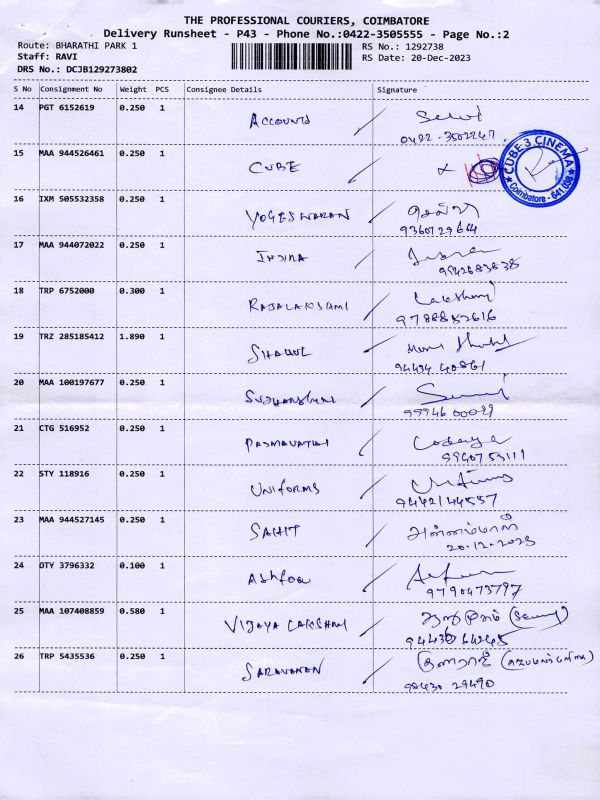 THE PROFESSIONAL COURIERS, COIMBATORE
Delivery Runsheet - P43 - Phone No.:0422-3505555 - Page No.:2
Route: BHARATHI PARK 1
RS No.: 1292738
Staff: RAVI
RS Date: 20-Dec-2023
DRS No.: DCJB129273802
S No Consignment No Weight PCS Consignee Details Signature
14 PGT 6152619 0.250 1 ACCOUNTS
0422-3502247
15 MAA 944526461 0.250 1 CUBE
CUBE 3 CINEMA
Coimbatore - 641 038
16 IXM 505532358 0.250 1 YOGESWARAN
9360729614
17 MAA 944072022 0.250 1 INDIRA
9942683838
18 TRP 6752000 0.300 1 RAJALAKSHMI Lakshmi
9788852616
19 TRZ 285185412 1.890 1 SHAHUL
94434 40861
20 MAA 100197677 0.250 1
99946 00099
21 CTG 516952 0.250 1 PADMAVATHI
9940753111
22 STY 118916 0.250 1 UNIFORMS
9442144557
23 MAA 944527145 0.250 1 SAHIT
20-12-2023
24 OTY 3796332 0.100 1 Ashfoa
9790473797
25 MAA 107408859 0.580 1 VIJAYA LAKSHMI
26 TRP 5435536 0.250 1 SARAVANAN
98430 29490